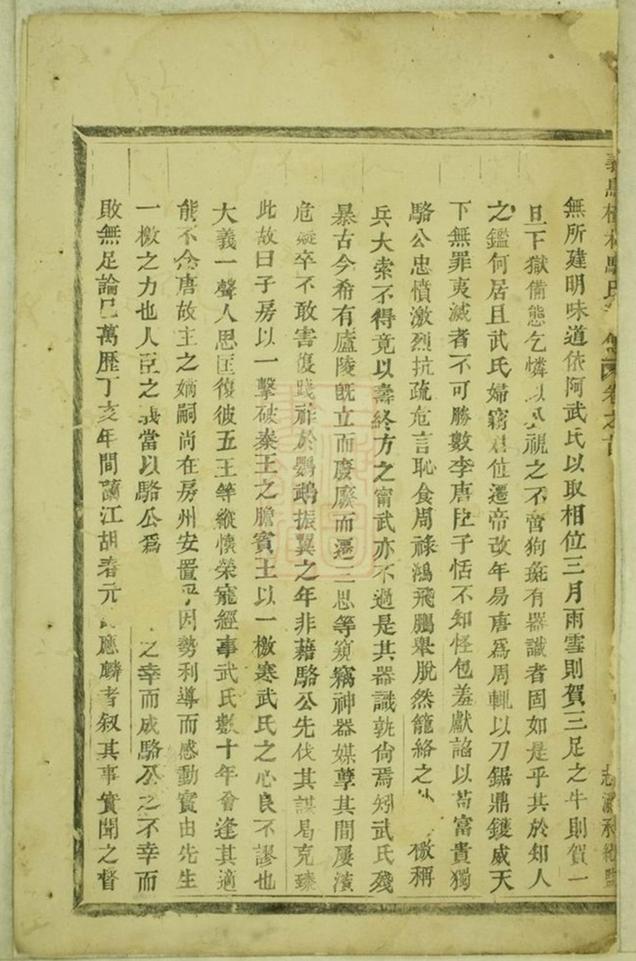 無所建明味道依阿武氏以取相位三月雨雪則賀三足之牛則賀一
旦下獄備態乞憐以視之不啻狗彘有器識者固如是乎其於知人
之鑑何居且武氏婦竊君位遷帝改年易唐爲周輒以刀鋸鼎鑊威天
下無罪夷滅者不可勝數李唐臣子恬不知怪包羞獻諂以苟富貴獨
駱公忠憤激烈抗疏危言恥食周祿鴻飛鵬舉脫然籠絡之檄稱
兵大索不得竟以壽終方之甯武亦不過是其器識孰尙焉矧武氏殘
暴古今希有廬陵旣立而廢廢而遷三思等窺竊神器媒孽其間屢瀕
危疑卒不敢害復踐祚於鸚鵡振翼之年非藉駱公先伐其謀曷克臻
此故曰子房以一擊破秦王之膽賓王以一檄寒武氏之心良不謬也
大義一聲人思匡復彼五王等縱懷榮寵經事武氏數十年會逢其適
能不念唐故主之嫡嗣尚在房州安置乎因勢利導而感動實由先生
一檄之力也人臣之當以駱公爲之幸而成駱公之不幸而
敗無足論已萬歷丁亥年間蘭江胡春元應麟者叙其事實聞之督